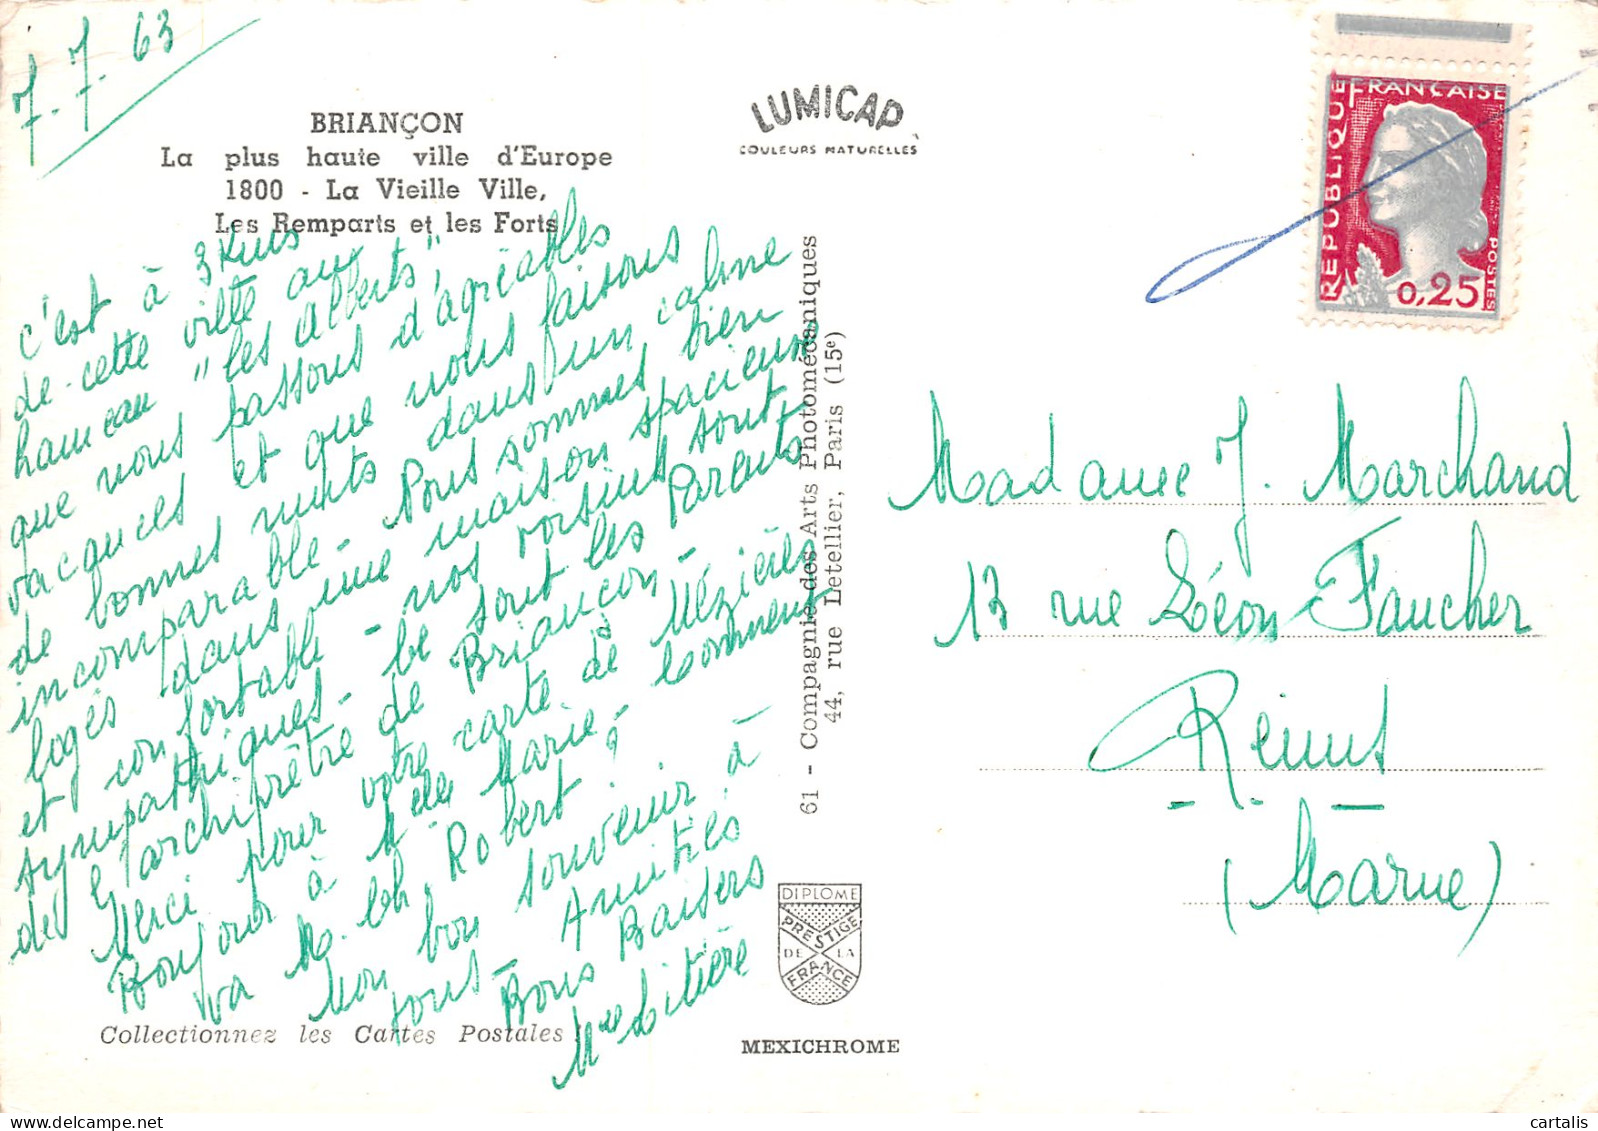 7-7-63
BRIANÇON
La plus haute ville d'Europe
1800 - La Vieille Ville,
Les Remparts et les Forts
c'est à 3 Kms
de cette ville au
hameau "les Alberts"
que nous passons d'agréables
vacances et que nous faisons
de bonnes nuits dans un calme
incomparable - Nous sommes bien
logés dans une maison spacieuse
et confortable - nos voisins sont
sympathiques - ce sont les Parents
de l'archiprêtre de Briançon -
Merci pour votre carte de Mézières
Bonjour à Melle Marie, Comment
va M. Ch. Robert ?
Mon bon souvenir à
tous - Amitiés
Bons Baisers
Mme Litière
Collectionnez les Cartes Postales !
LUMICAP
COULEURS NATURELLES
61 - Compagnie des Arts Photomécaniques
44, rue Letellier, Paris (15e)
DIPLOME
PRESTIGE
DE LA
FRANCE
MEXICHROME
RÉPUBLIQUE FRANÇAISE
POSTES
0,25
Madame J. Marchand
13 rue Léon Faucher
Reims
(Marne)
cartalis